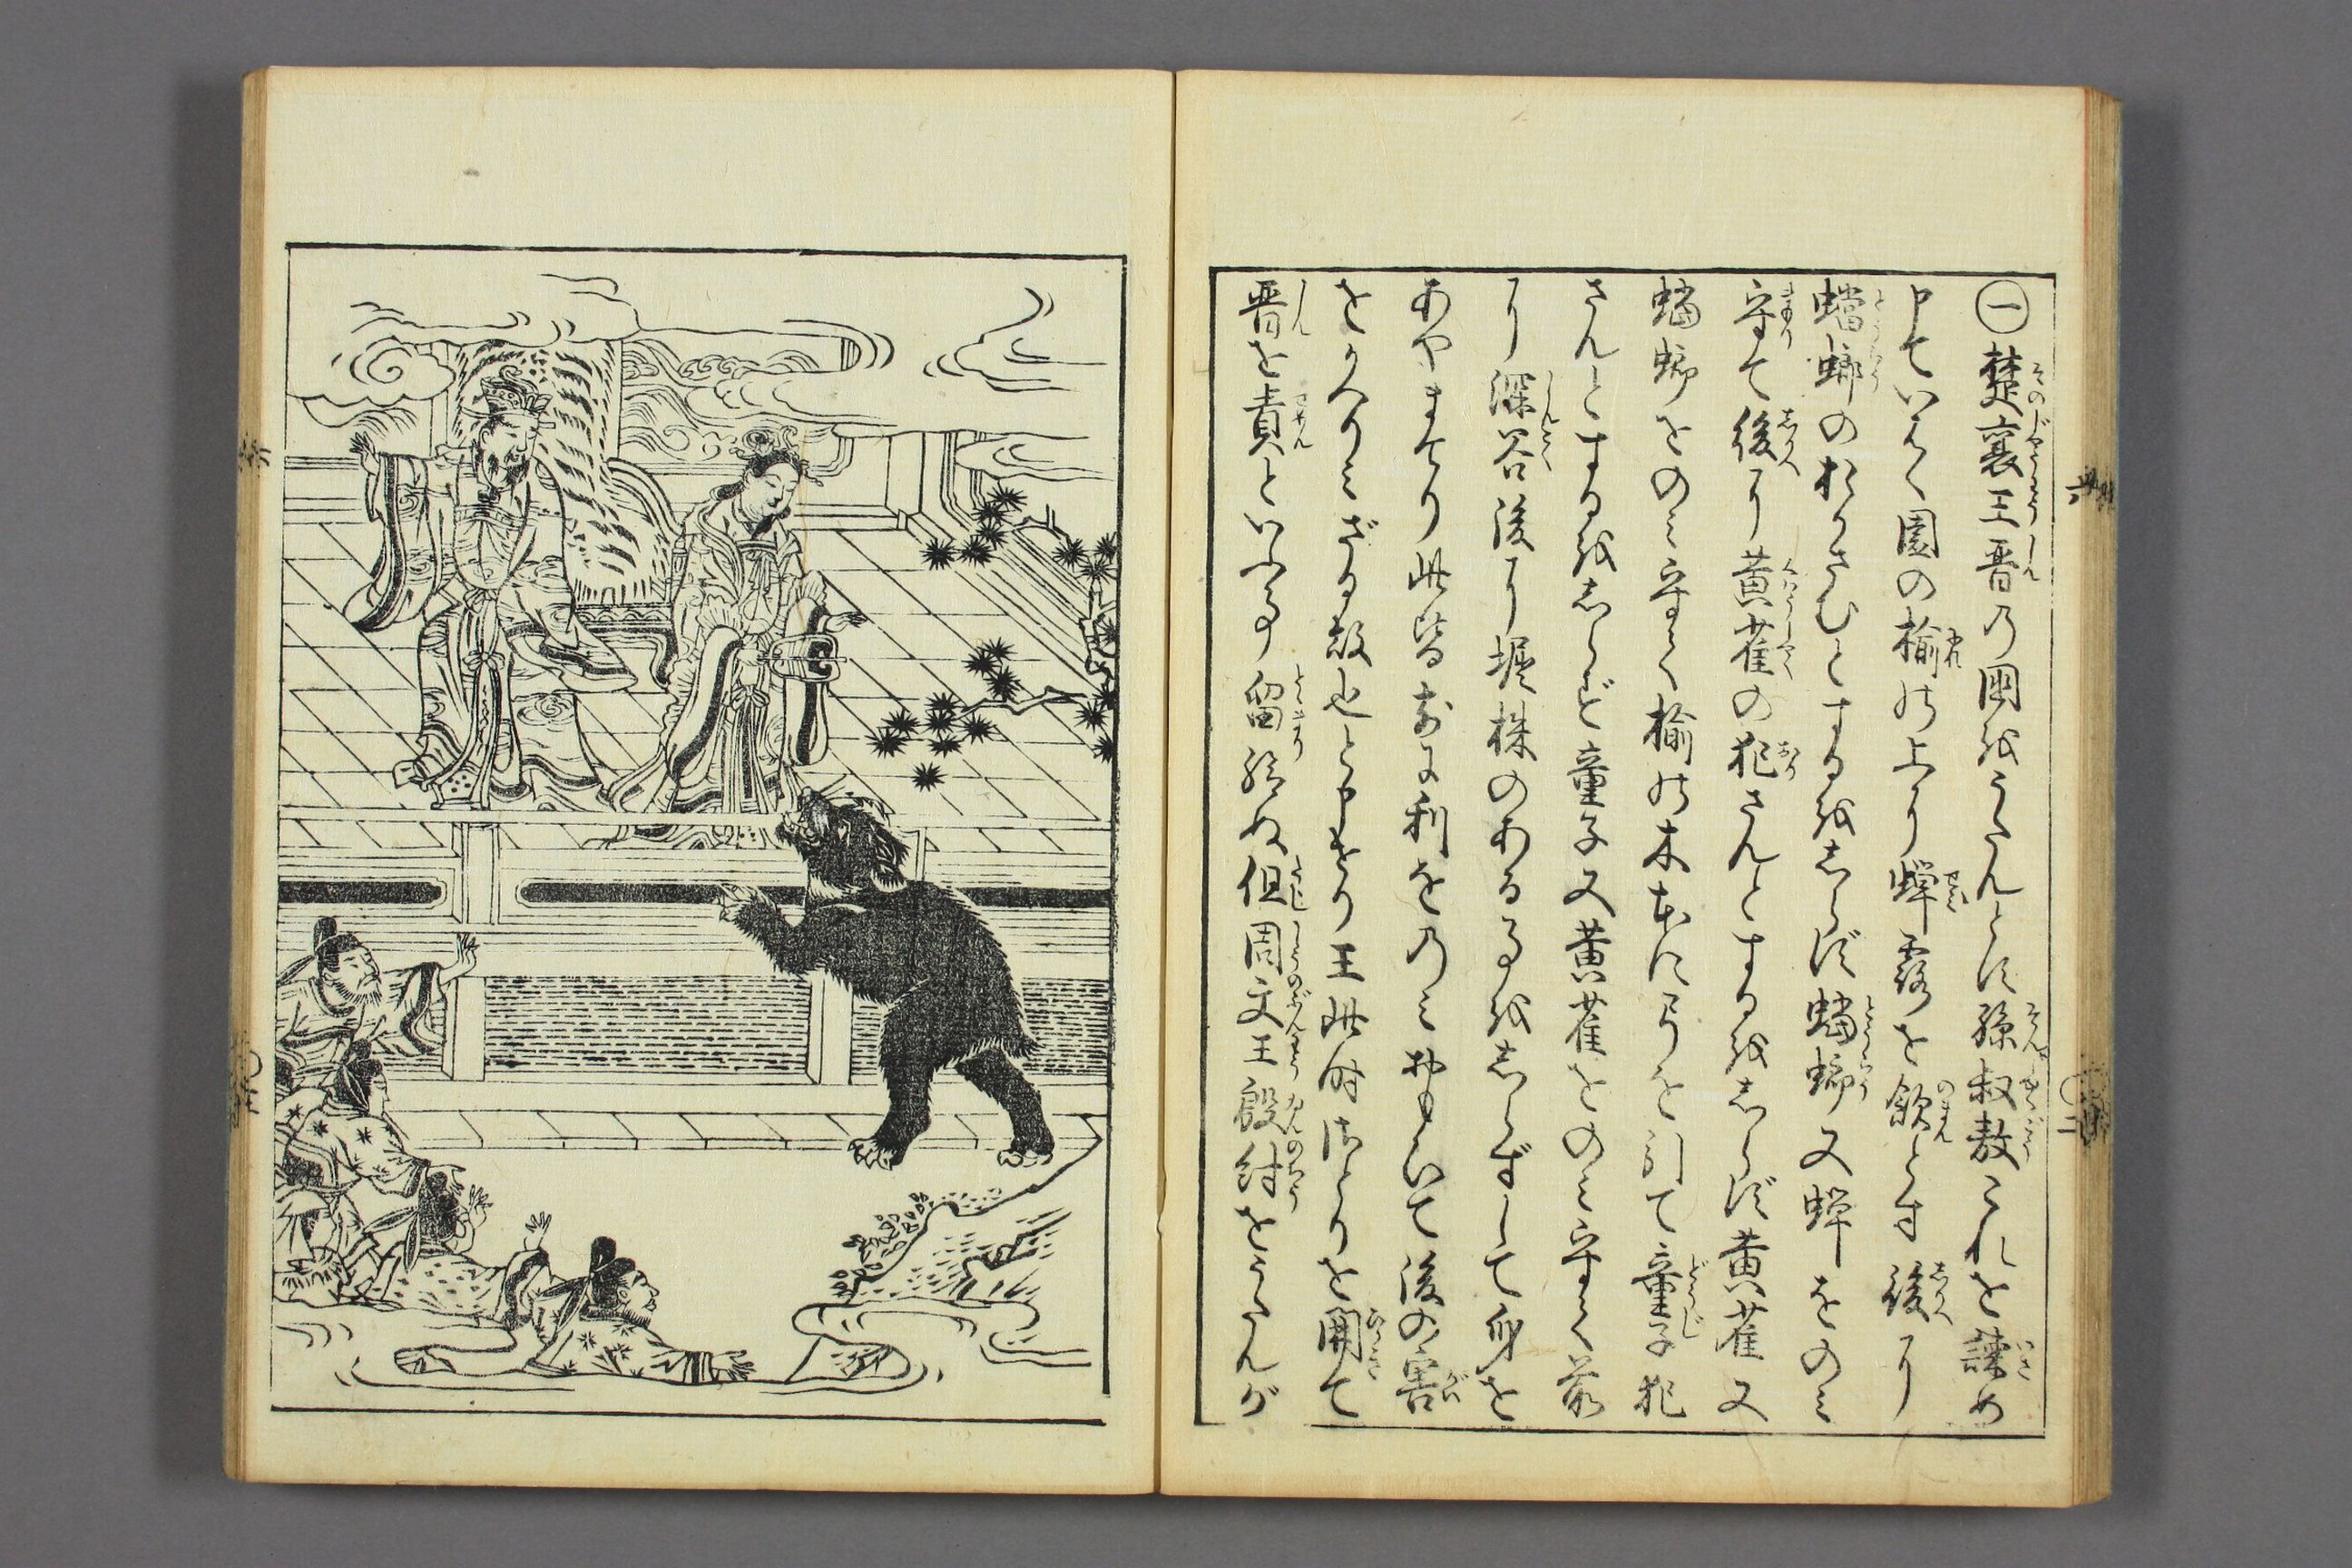 ㊀楚襄王晋の国をうたんとす孫叔敖これを諫め
申ていはく園の楡の上に蝉露を飲とす後に
蟷螂のおかさむとするをしらず蟷螂又蝉をのミ
守て後に黄雀の犯さんとするをしらず黄雀又
蟷螂をのミ守て楡の木本に弓を引て童子犯
さんとするをしらず童子又黄雀をのミ守て前
に深谷後に堀株のある事をしらずして身を
あやまてり此皆前の利をのミおもひて後の害
をかへりミざる故也と申せり王此時さとりを開て
晋を責といふ事留給ぬ但周文王殷紂をうたんが